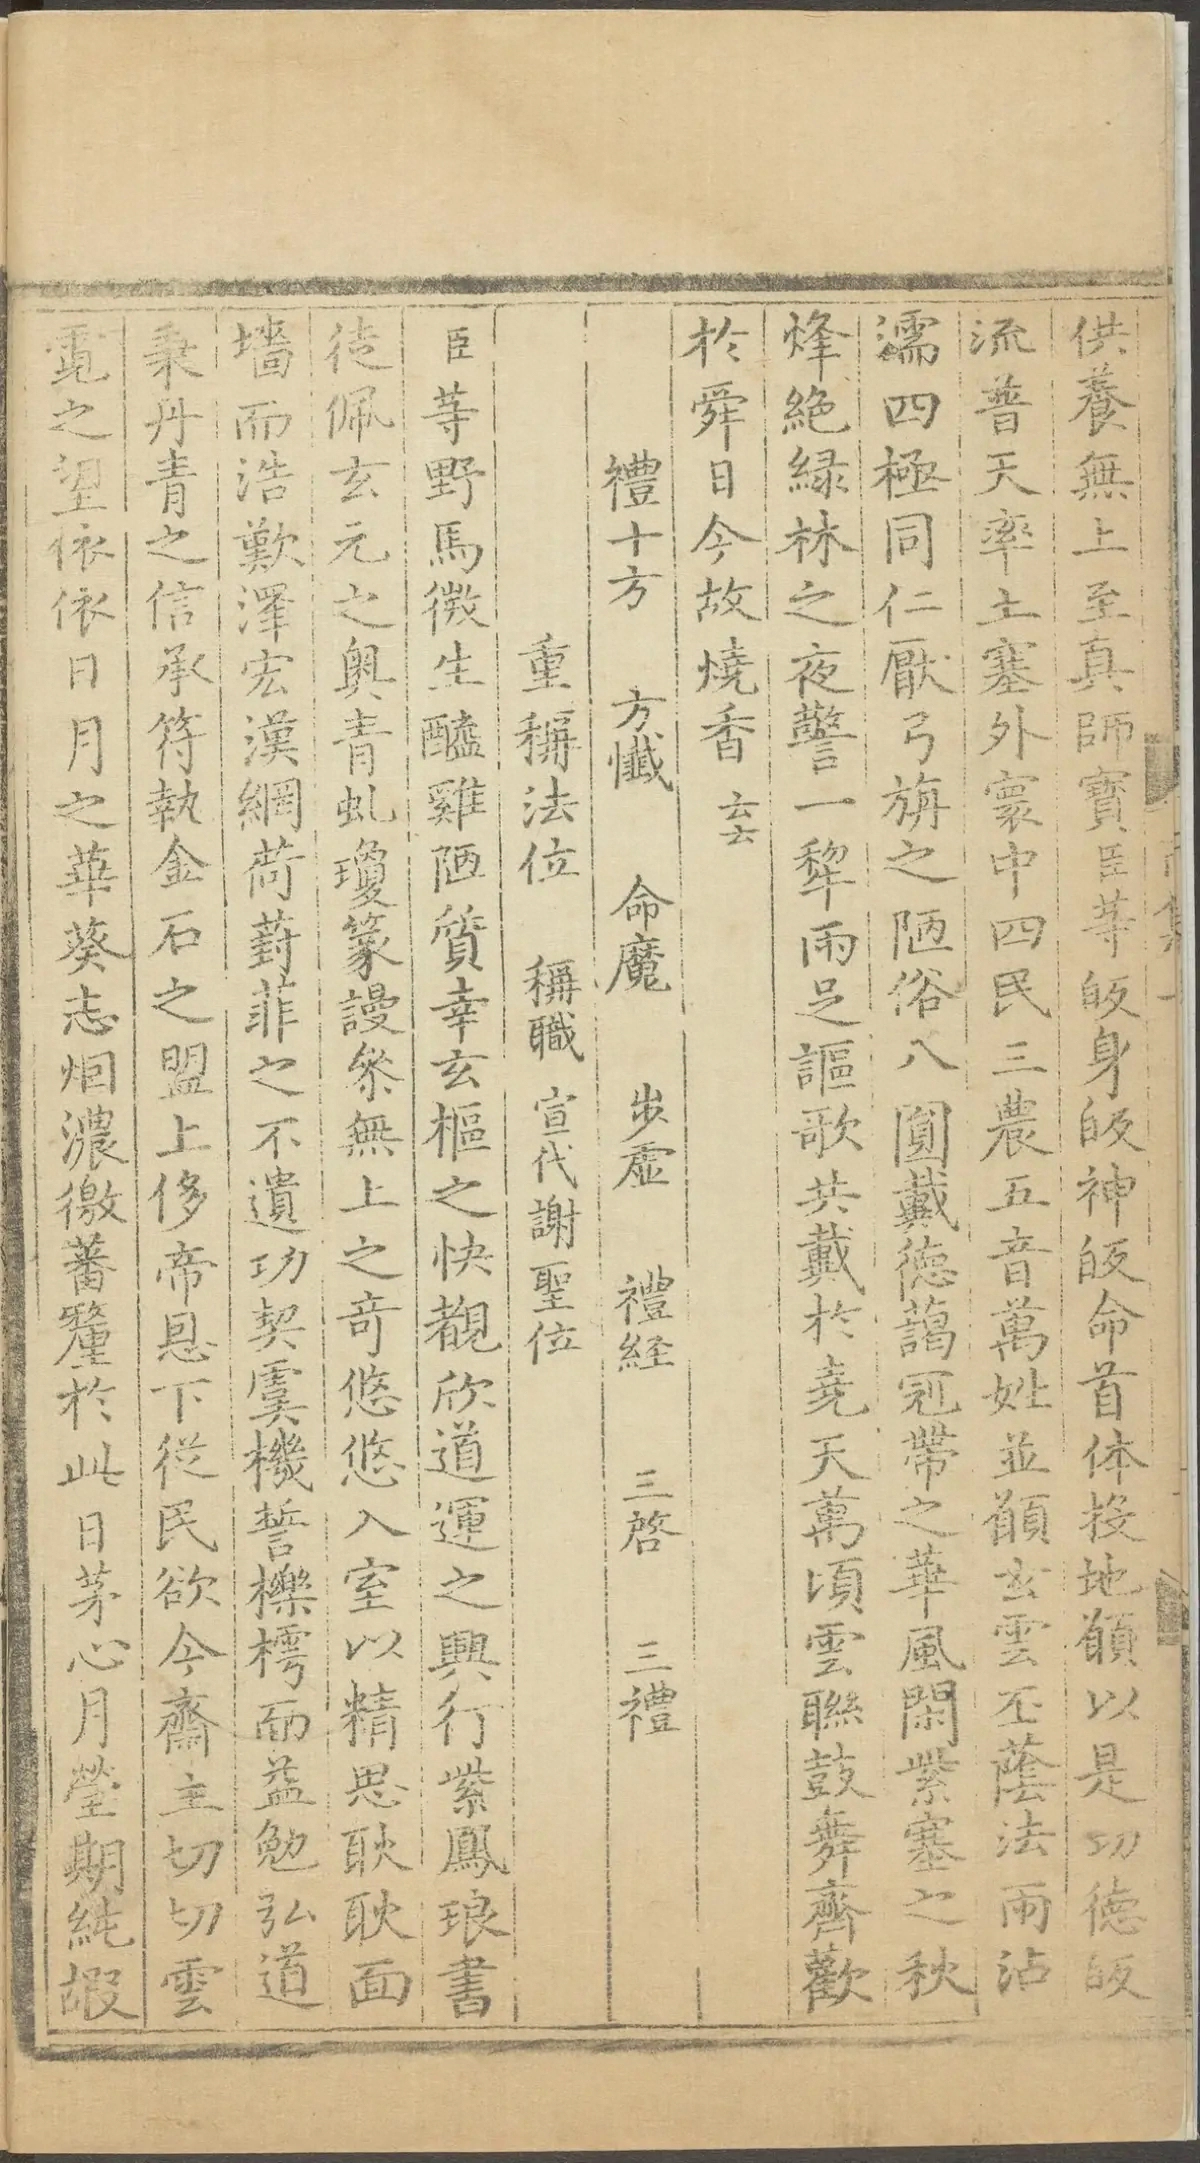 供養無上至真師寶臣等皈身皈神皈命首体投地願以是功德皈
流普天率土塞外寰中四民三農五音萬姓並願玄雲丕蔭法雨沾
濡四極同仁厭弓旃之陋俗八圓戴德藹冠帶之華風閑紫塞之秋
烽絶緑林之夜警一犂雨足謳歌共戴於堯天萬頃雲聯鼓舞齊歡
於舜日今故燒香云云
禮十方 方懺 命魔 步虛 禮経 三啓 三禮
重稱法位 稱職 宣代謝聖位
臣等野馬微生醯雞陋質幸玄樞之快覩欣道運之興行紫鳳琅書
徒佩玄元之奧青虬瓊篆謾叅無上之竒悠悠入室以精思耿耿面
墻而浩歎澤宏漢綱荷葑菲之不遺功契靈機誓櫟樗而益勉弘道
秉丹青之信承符執金石之盟上侈帝恩下從民欲今齋主切切雲
霓之望依依日月之華葵志烟濃徼蕃釐於此日茅心月瑩期純嘏